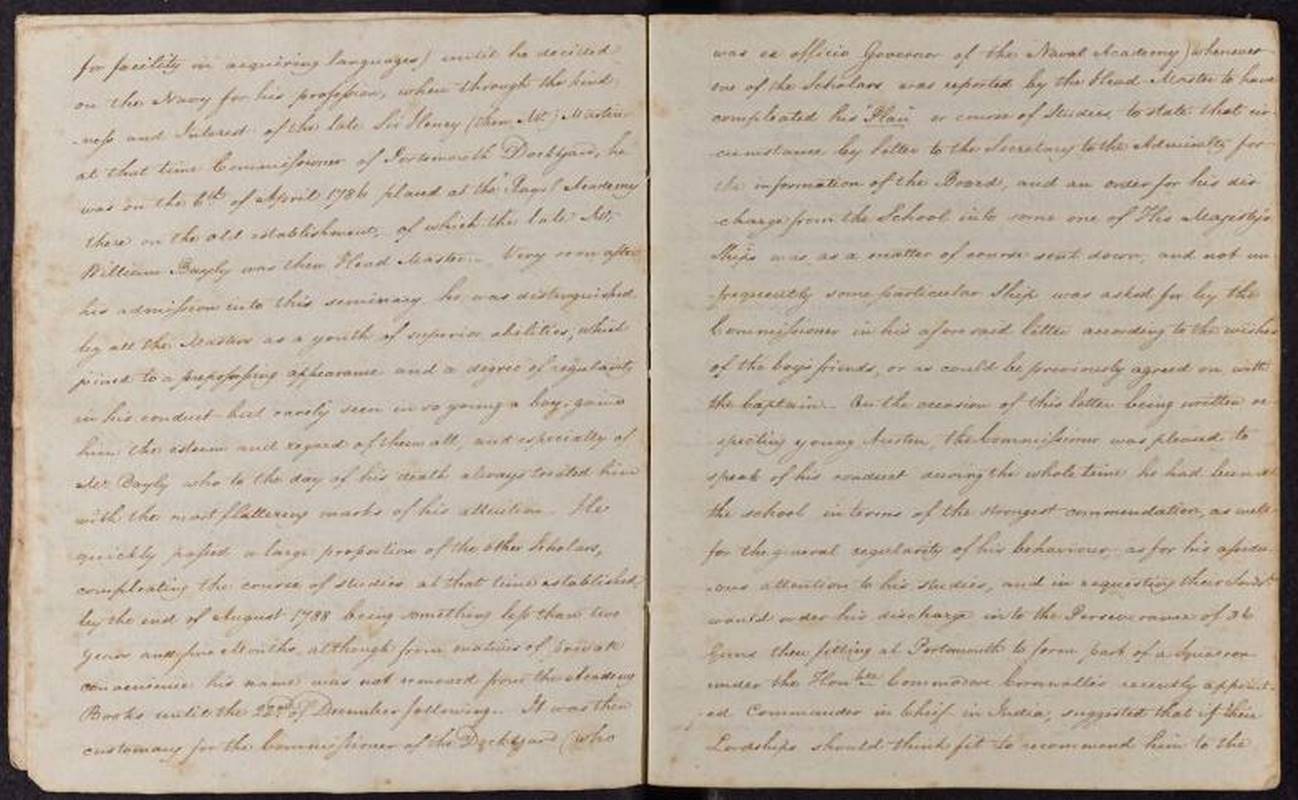 for facility in acquiring languages) until he decided
on the Navy for his profession, when through the kind
-ness and Interest of the late Sir Henry (then Mr.) Martin
at that time Commissioner of Portsmouth Dockyard, he
was on the 6th of April 1786 placed at the Royal Academy
there on the old establishment, of which the late Mr.
William Bayly was then Head Master. Very soon after
his admission into this seminary he was distinguished
by all the Masters as a youth of superior abilities, which
joined to a prepossessing appearance and a degree of regularity
in his conduct but rarely seen in so young a boy, gained
him the esteem and regard of them all, and especially of
Mr. Bayly who to the day of his death always treated him
with the most flattering marks of his attention. He
quickly passed a large proportion of the other Scholars,
compleating the course of studies at that time established,
by the end of August 1788 being something less than two
years and five Months, although from motives of private
convenience his name was not removed from the Academy
Books until the 22nd of December following. It was then
customary for the Commissioner of the Dockyard (who
was ex officio Governor of the Naval Academy) whenever
one of the Scholars was reported by the Head Master to have
compleated his "Plan" or course of Studies, to state that cir-
-cumstance by letter to the Secretary to the Admiralty for
the information of the Board, and an order for his dis
-charge from the School into some one of His Majesty's
Ships was as a matter of course sent down, and not un
-frequently some particular Ship was asked for by the
Commissioner in his aforesaid letter according to the wishes
of the boys friends, or as could be previously agreed on with
the Captain. On the occasion of this letter being written re
-specting young Austen, the Commissioner was pleased to
speak of his conduct during the whole time he had been at
the school in terms of the strongest commendation, as well
for the general regularity of his behaviour, as for his assidu-
-ous attention to his studies, and in requesting their Lordsps
would order his discharge into the Perseverance of 36
Guns then fitting at Portsmouth to form part of a Squadron
under the Honble Commodore Cornwallis recently appoint-
-ed Commander in Chief in India, suggested that if their
Lordships should think fit to recommend him to the